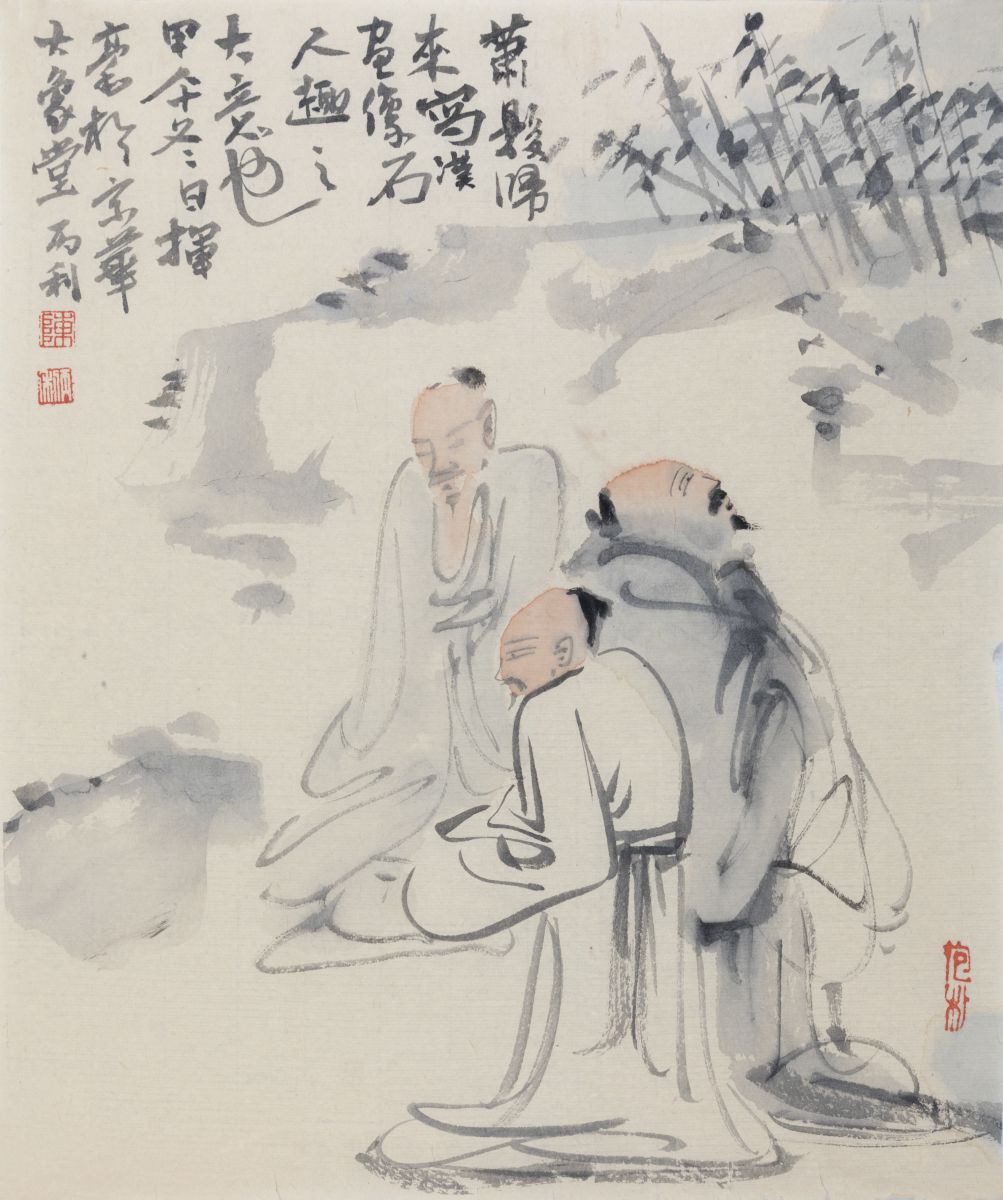 蕭髮歸
來寫漢
畫像石
人趣之
大意也
甲午冬日揮
毫於京華
大象堂 丙利
陳
丙利
抱朴